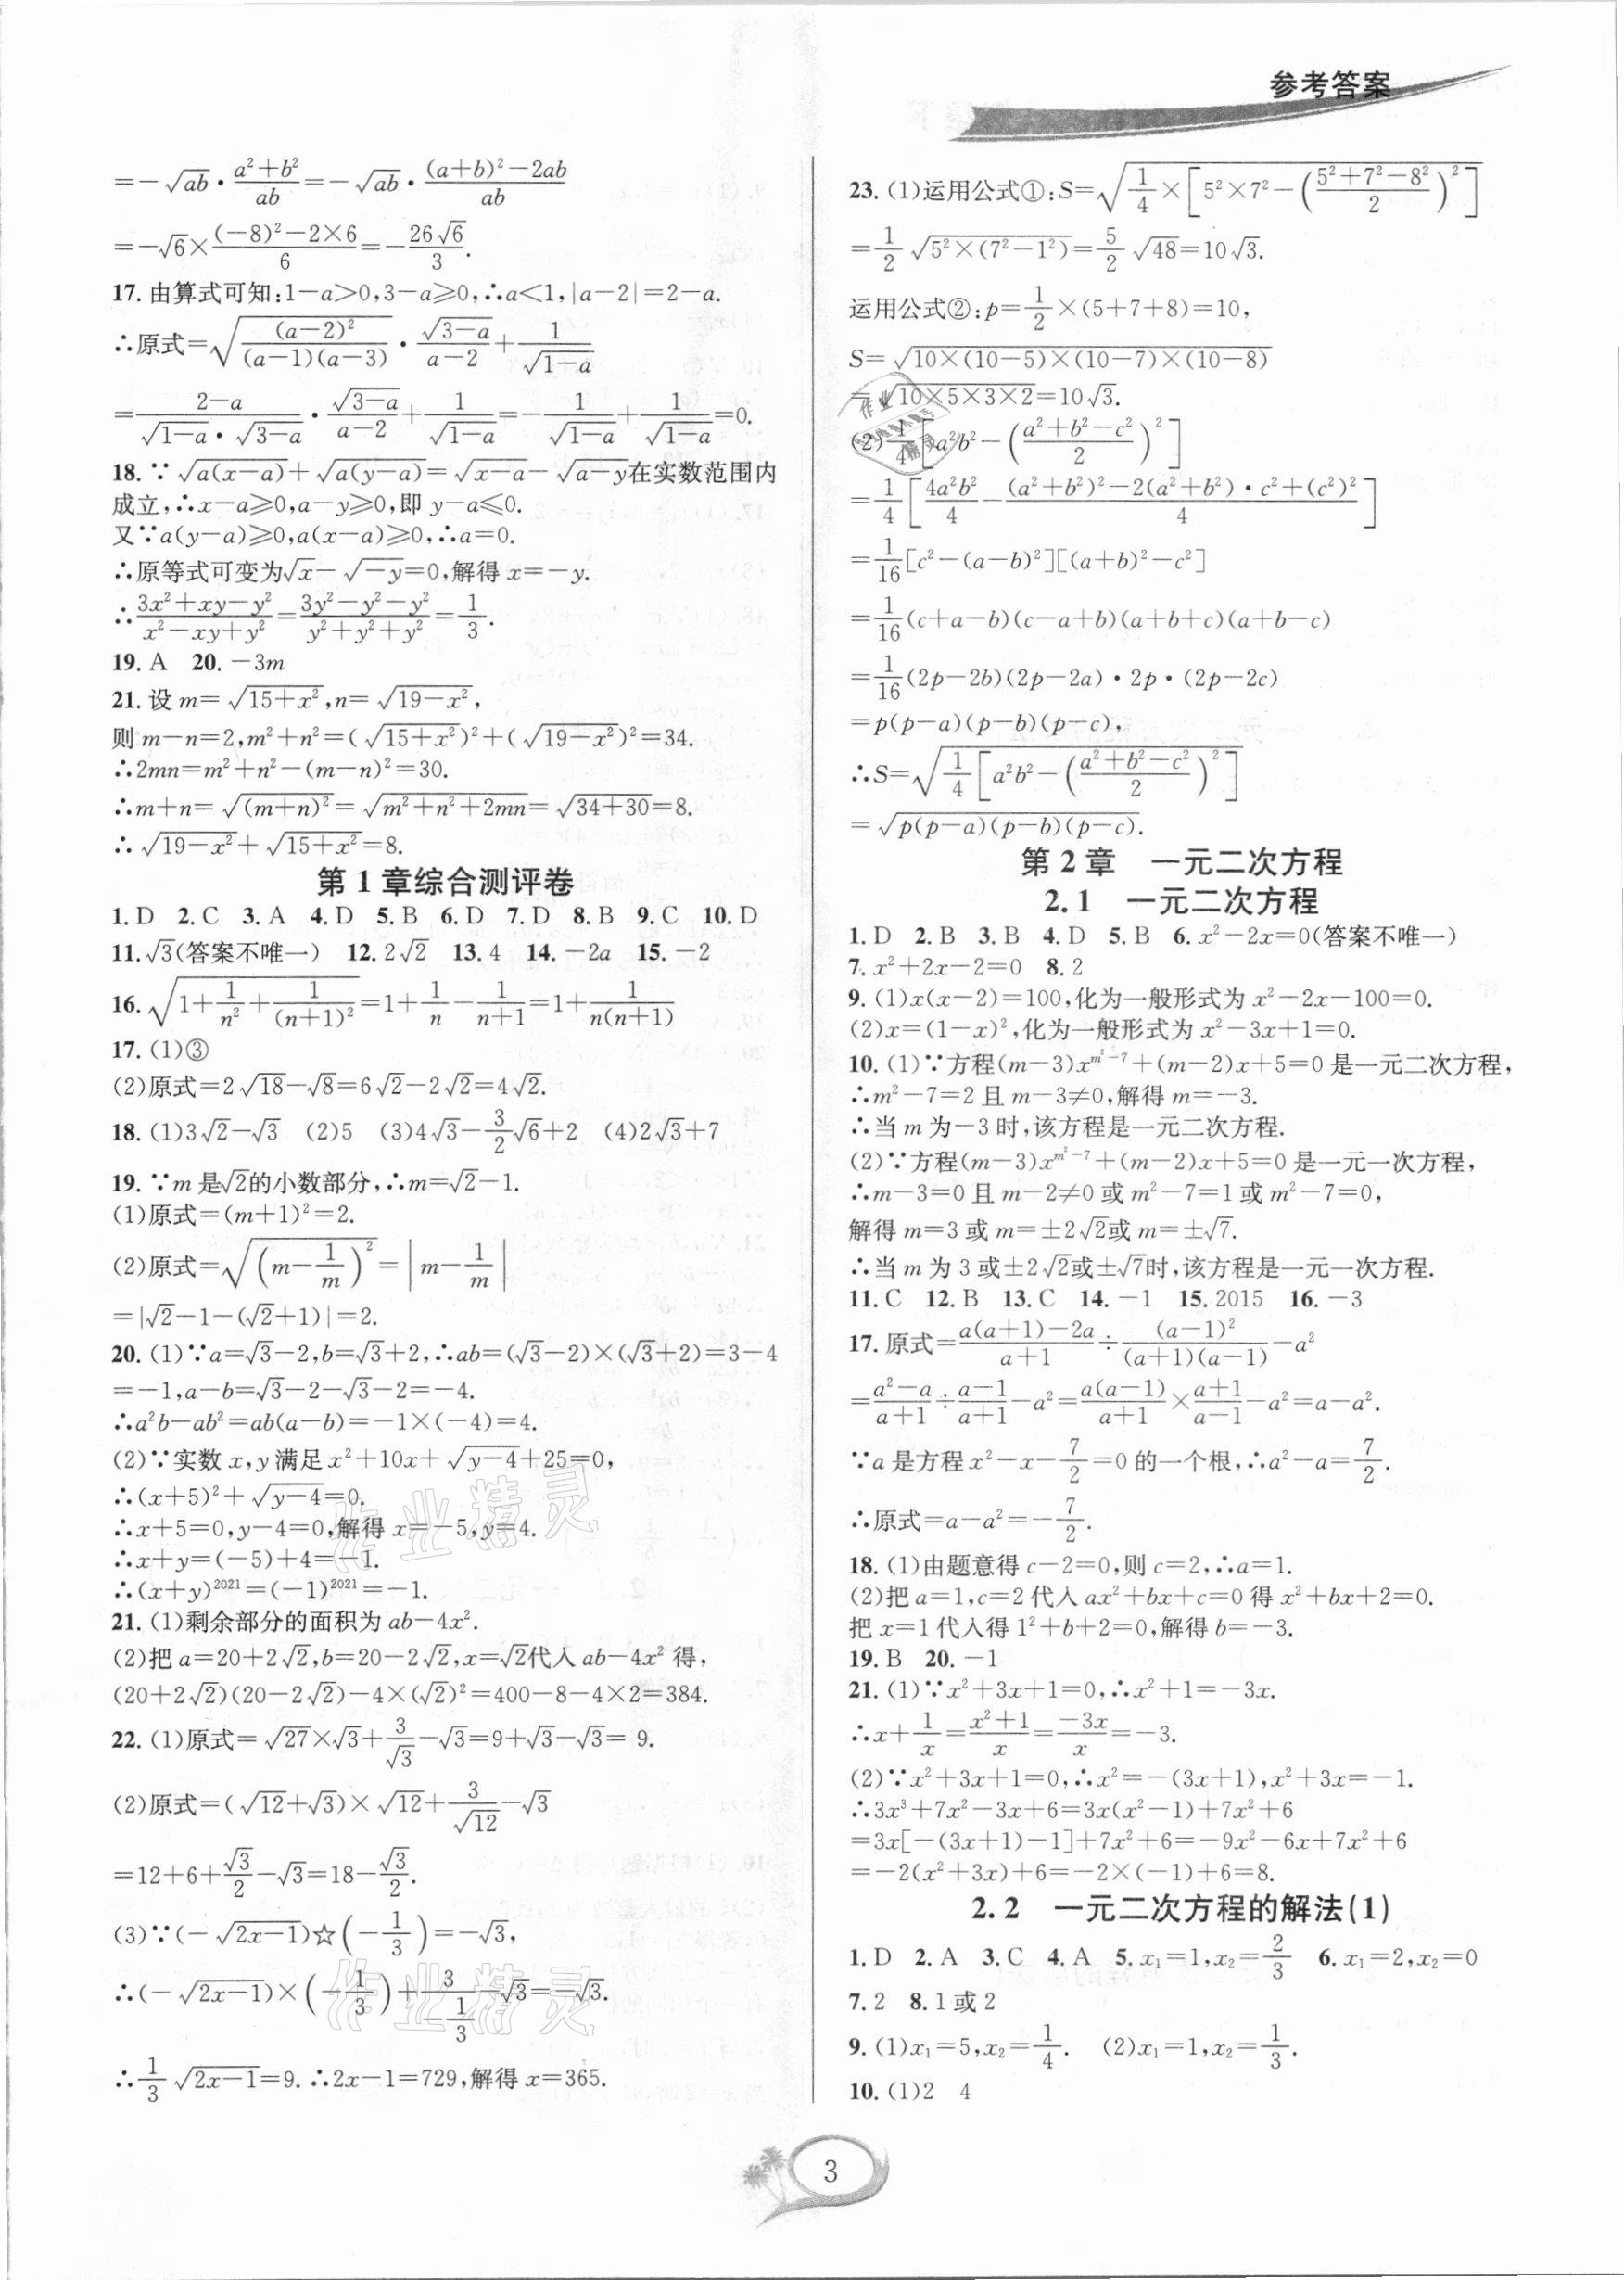 参考答案
=-√ab·(a²+b²)/ab=-√ab·((a+b)²-2ab)/ab
=-√6×((-8)²-2×6)/6=-26√6/3.
17. 由算式可知:1-a>0,3-a≥0,∴a<1,|a-2|=2-a.
∴原式=√((a-2)²/((a-1)(a-3)))·√(3-a)/(a-2)+1/√(1-a)
=(2-a)/(√(1-a)·√(3-a))·√(3-a)/(a-2)+1/√(1-a)=-1/√(1-a)+1/√(1-a)=0.
18. ∵√(a(x-a))+√(a(y-a))=√(x-a)-√(a-y)在实数范围内
成立,∴x-a≥0,a-y≥0,即 y-a≤0.
又∵a(y-a)≥0,a(x-a)≥0,∴a=0.
∴原等式可变为√x-√(-y)=0,解得 x=-y.
∴(3x²+xy-y²)/(x²-xy+y²)=(3y²-y²-y²)/(y²+y²+y²)=1/3.
19. A 20. -3m
21. 设 m=√(15+x²),n=√(19-x²),
则 m-n=2,m²+n²=(√(15+x²))²+(√(19-x²))²=34.
∴2mn=m²+n²-(m-n)²=30.
∴m+n=√((m+n)²)=√(m²+n²+2mn)=√(34+30)=8.
∴√(19-x²)+√(15+x²)=8.
第 1 章综合测评卷
1. D 2. C 3. A 4. D 5. B 6. D 7. D 8. B 9. C 10. D
11. √3(答案不唯一) 12. 2√2 13. 4 14. -2a 15. -2
16. √(1+1/n²+1/(n+1)²)=1+1/n-1/(n+1)=1+1/(n(n+1))
17. (1)③
(2)原式=2√18-√8=6√2-2√2=4√2.
18. (1)3√2-√3 (2)5 (3)4√3-3/2√6+2 (4)2√3+7
19. ∵m 是√2的小数部分,∴m=√2-1.
(1)原式=(m+1)²=2.
(2)原式=√((m-1/m)²)=|m-1/m|
=|√2-1-(√2+1)|=2.
20. (1)∵a=√3-2,b=√3+2,∴ab=(√3-2)×(√3+2)=3-4
=-1,a-b=√3-2-√3-2=-4.
∴a²b-ab²=ab(a-b)=-1×(-4)=4.
(2)∵实数 x,y 满足 x²+10x+√(y-4)+25=0,
∴(x+5)²+√(y-4)=0.
∴x+5=0,y-4=0,解得 x=-5,y=4.
∴x+y=(-5)+4=-1.
∴(x+y)²⁰²¹=(-1)²⁰²¹=-1.
21. (1)剩余部分的面积为 ab-4x².
(2)把 a=20+2√2,b=20-2√2,x=√2代入 ab-4x² 得,
(20+2√2)(20-2√2)-4×(√2)²=400-8-4×2=384.
22. (1)原式=√27×√3+3/√3-√3=9+√3-√3=9.
(2)原式=(√12+√3)×√12+3/√12-√3
=12+6+√3/2-√3=18-√3/2.
(3)∵(-√(2x-1))☆(-1/3)=-√3,
∴(-√(2x-1))×(-1/3)+3/(-1/3)-√3=-√3.
∴1/3√(2x-1)=9. ∴2x-1=729,解得 x=365.
23. (1)运用公式①:S=√(1/4×[5²×7²-((5²+7²-8²)/2)²])
=1/2√(5²×(7²-1²))=5/2√48=10√3.
运用公式②:p=1/2×(5+7+8)=10,
S=√(10×(10-5)×(10-7)×(10-8))
=√(10×5×3×2)=10√3.
(2)1/4[a²b²-((a²+b²-c²)/2)²]
=1/4[4a²b²/4-((a²+b²)²-2(a²+b²)·c²+(c²)²)/4]
=1/16[c²-(a-b)²][(a+b)²-c²]
=1/16(c+a-b)(c-a+b)(a+b+c)(a+b-c)
=1/16(2p-2b)(2p-2a)·2p·(2p-2c)
=p(p-a)(p-b)(p-c),
∴S=√(1/4[a²b²-((a²+b²-c²)/2)²])
=√(p(p-a)(p-b)(p-c)).
第 2 章 一元二次方程
2.1 一元二次方程
1. D 2. B 3. B 4. D 5. B 6. x²-2x=0(答案不唯一)
7. x²+2x-2=0 8. 2
9. (1)x(x-2)=100,化为一般形式为 x²-2x-100=0.
(2)x=(1-x)²,化为一般形式为 x²-3x+1=0.
10. (1)∵方程(m-3)x^(m²-7)+(m-2)x+5=0 是一元二次方程,
∴m²-7=2 且 m-3≠0,解得 m=-3.
∴当 m 为-3 时,该方程是一元二次方程.
(2)∵方程(m-3)x^(m²-7)+(m-2)x+5=0 是一元一次方程,
∴m-3=0 且 m-2≠0 或 m²-7=1 或 m²-7=0,
解得 m=3 或 m=±2√2或 m=±√7.
∴当 m 为 3 或±2√2或±√7时,该方程是一元一次方程.
11. C 12. B 13. C 14. -1 15. 2015 16. -3
17. 原式=(a(a+1)-2a)/(a+1)÷(a-1)²/((a+1)(a-1))-a²
=(a²-a)/(a+1)÷(a-1)/(a+1)-a²=a(a-1)/(a+1)×(a+1)/(a-1)-a²=a-a².
∵a 是方程 x²-x-7/2=0 的一个根,∴a²-a=7/2.
∴原式=a-a²=-7/2.
18. (1)由题意得 c-2=0,则 c=2,∴a=1.
(2)把 a=1,c=2 代入 ax²+bx+c=0 得 x²+bx+2=0.
把 x=1 代入得 1²+b+2=0,解得 b=-3.
19. B 20. -1
21. (1)∵x²+3x+1=0,∴x²+1=-3x.
∴x+1/x=(x²+1)/x=-3x/x=-3.
(2)∵x²+3x+1=0,∴x²=-(3x+1),x²+3x=-1.
∴3x³+7x²-3x+6=3x(x²-1)+7x²+6
=3x[-(3x+1)-1]+7x²+6=-9x²-6x+7x²+6
=-2(x²+3x)+6=-2×(-1)+6=8.
2.2 一元二次方程的解法(1)
1. D 2. A 3. C 4. A 5. x₁=1,x₂=2/3 6. x₁=2,x₂=0
7. 2 8. 1 或 2
9. (1)x₁=5,x₂=1/4. (2)x₁=1,x₂=1/3.
10. (1)2 4
3
作业精灵
作业精灵